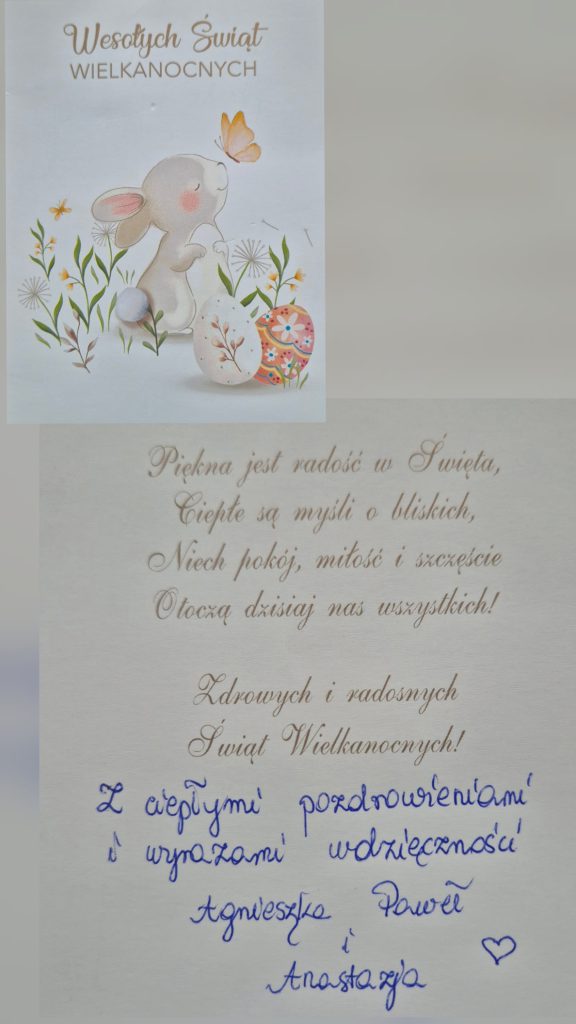 Wesołych Świąt
WIELKANOCNYCH
Piękna jest radość w Święta,
Ciepłe są myśli o bliskich,
Niech pokój, miłość i szczęście
Otoczą dzisiaj nas wszystkich!
Zdrowych i radosnych
Świąt Wielkanocnych!
Z ciepłymi pozdrowieniami
i wyrazami wdzięczności
Agnieszka Paweł
i
Anastazja